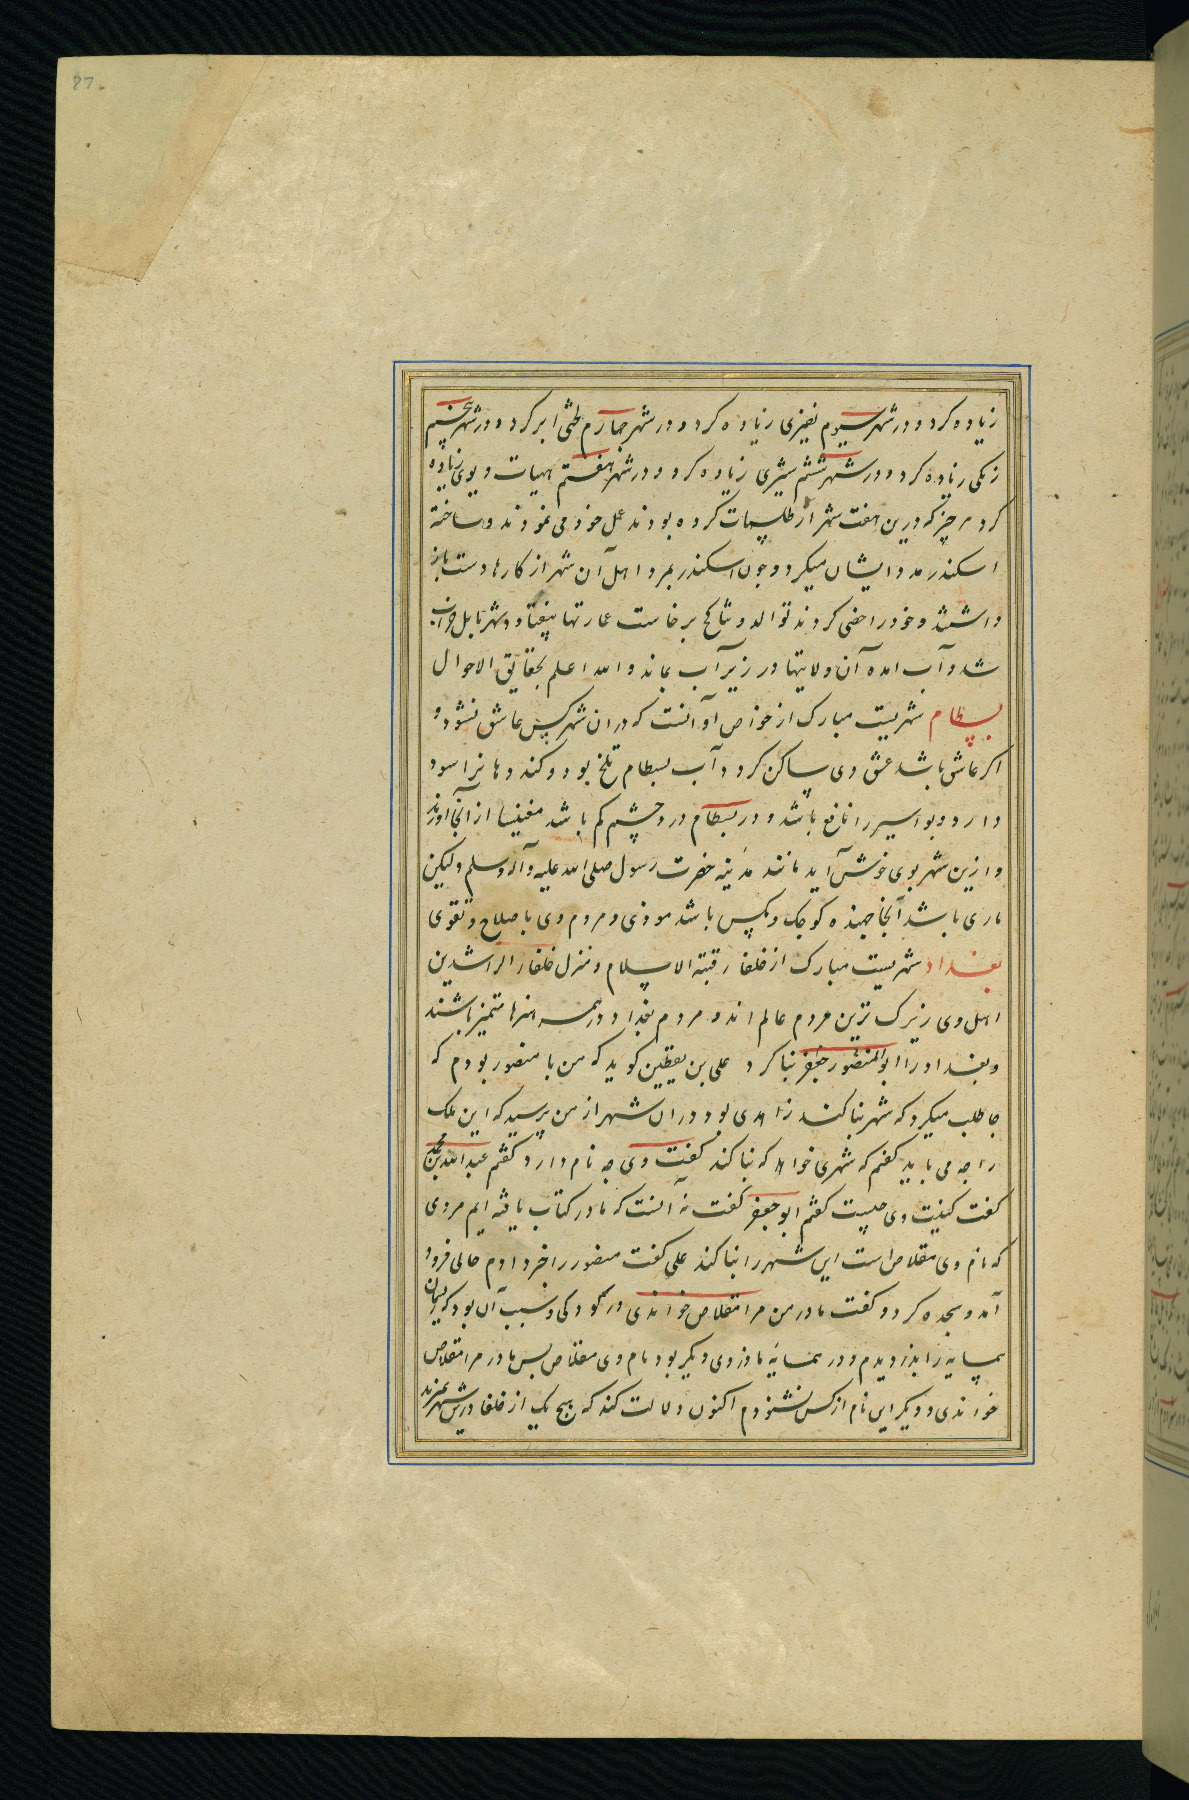 87.
زیاده کرد و در شهر سیوم نفیری زیاده کرد و در شهر چهارم بطی ابر کرد و در شهر پنجم
زنکی زیاده کرد و در شهر ششم شیری زیاده کرد و در شهر هفتم هیات و یوی زیاده
کرد هر چیز که درین هفت شهر از طلسمات کرده بودند عمل خود می نمودند و ساخته
اسکندر مدد ایشان میکرد و چون اسکندر بمرد اهل آن شهر از کارها دست باز
داشتند و خود را خصی کردند توالد و تناکح برخاست عمارتها بیفتاد و شهر بابل خراب
شد و آب امده آن ولایتها در زیر آب بماند و الله اعلم بحقایق الاحوال
بسطام شهریست مبارک از خواص او آنست که در ان شهر کس عاشق نشود و
اکر عاشق باشد عشق وی ساکن کردد و آب بسطام تلخ بود و کند دهانرا سود
دارد و بواسیر را نافع باشد و در بسطام درد چشم کم باشد مغنیسا از آنجا اورند
و ازین شهر بوی خوش آید مانند مدینه حضرت رسول صلی الله علیه و آله وسلم و لیکن
ماری باشد آنجا جهنده کوچک و مکس باشد موذی و مردم وی با صلاح و تقوی
بغداد شهریست مبارک از خلفا قبة الاسلام و منزل خلفاء الراشدین
اهل وی زیرک ترین مردم عالم اند و مردم بغداد در همه هنرها متمیز باشند
و بغداد را ابوالمنصور جعفر بنا کرد علی بن یقطین کوید که من با منصور بودم که
جا طلب میکرد که شهر بنا کند زاهدی بود در ان شهر از من پرسید که این ملک
را چه می باید کفتم که شهری خواهد که بنا کند کفت وی چه نام دارد کفتم عبدالله بن محمد
کفت کنیت وی چیست کفتم ابو جعفر کفت نه آنست که ما در کتاب یافته ایم مردی
که نام وی مقلاص است این شهر را بنا کند علی کفت منصور را خبر دادم حالی فرود
آمد و سجده کرد و کفت مادر من مرا مقلاص خواندی در کودکی و سبب آن بود که ریسمان
همسایه را بدزدیدم و در همسایه ما دزدی دیکر بود نام وی مقلاص پس مادر مرا مقلاص
خواندی و دیکر این نام از کس نشنودم اکنون دلالت کند که هیچ یک از خلفا درین شهر نمیرند